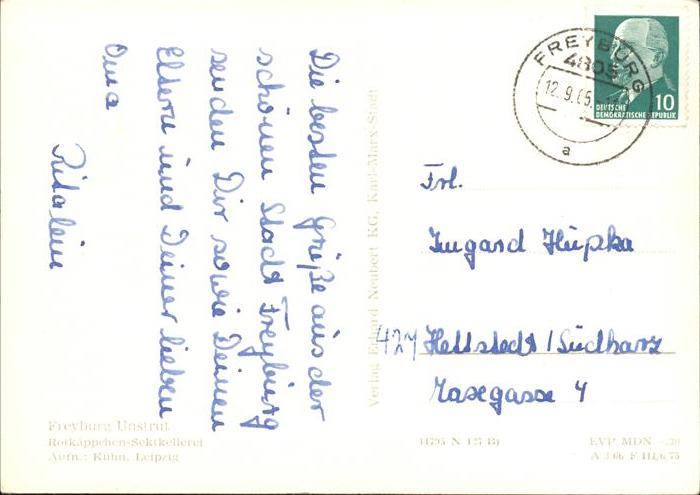 Die besten Grüße aus der
schönen Stadt Freyburg
senden Dir sowie Deinen
Eltern und Deiner lieben
Oma
Ritalein
FREYBURG
4805
12.9.65
a
10
DEUTSCHE
DEMOKRATISCHE REPUBLIK
Verlag Erhard Neubert KG, Karl-Marx-Stadt
Frl.
Irmgard Hupka
427 Hettstedt/Südharz
Hasegasse 4
Freyburg Unstrut
Rotkäppchen-Sektkellerei
Aufn.: Kühn, Leipzig
EVP MDN -,20